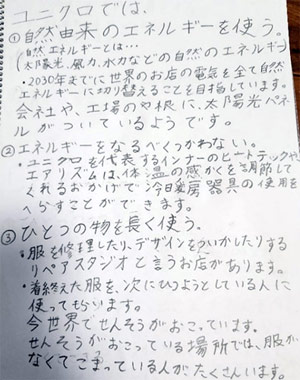 ユニクロでは、
①自然由来のエネルギーを使う。
(自然エネルギーとは…
太陽光、風力、水力などの自然のエネルギー)
・2030年までに世界のお店の電気を全て自然
エネルギーに切り替えることを目指しています。
会社や、工場のやねに、太陽光パネ
ルがついているようです。
②エネルギーをなるべくつかわない。
・ユニクロを代表するインナーのヒートテックや、
エアリズムは、体温の感かくを調節して
くれるおかげで冷暖房器具の使用を
へらすことができます。
③ひとつの物を長く使う。
・服を修理したり、デザインをついかしたりする
リペアスタジオと言うお店があります。
・着終えた服を、次にひつようとしている人に
使ってもらいます。
今世界でせんそうがおこっています。
せんそうがおこっている場所では、服が
なくてこまっている人が、たくさんいます。